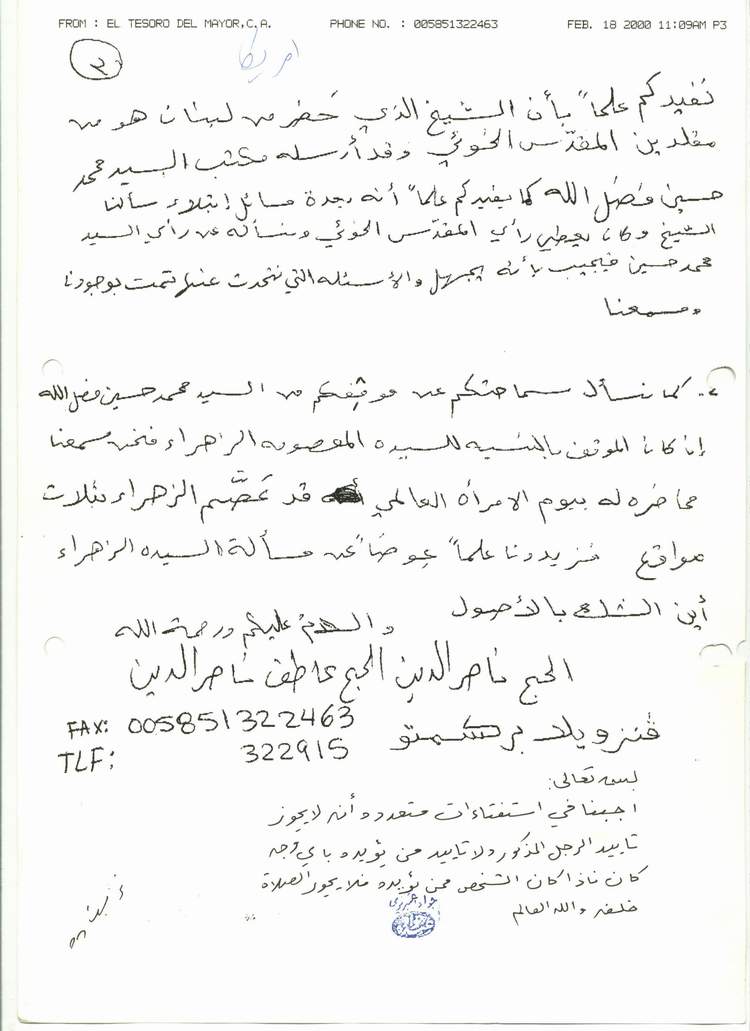 FROM : EL TESORO DEL MAYOR,C.A. PHONE NO. : 005851322463 FEB. 18 2000 11:09AM P3
٣ امريكا
نفيدكم علماً بأن الشيخ الذي حَضر من لبنان هو من
مقلدين المقدّس الخوئي وقد أرسله مكتب السيد محمد
حسين فضل الله كما يفيدكم علماً أنه بعدة مسائل إبتلاء سألنا
الشيخ وكان يعطي رأي المقدّس الخوئي ونسأله عن رأي السيد
محمد حسين فيجيب بأنه يجهل والأسئله التي نتحدث عنها تمت بوجودنا
ومسمعنا
٢- كما نسأل سماحتكم عن موقفكم من السيد محمد حسين فضل الله
إن كان الموقف بالنسبه للسيده المعصومه الزهراء فنحن سمعنا
محاضره له بيوم الامرأه العالمي قد عَصَّم الزهراء بثلاث
مواقع فزيدونا علماً عِوضاً عن مسألة السيده الزهراء
أين الشلع بالأصول
والسلام عليكم ورحمة الله
الحج ناصر الدين الحج عاطف ناصر الدين
ڤنزويلا بركسمتو
FAX: 005851322463
TLF: 322915
بسمه تعالى:
اجبنا في استفتاءات متعدده أنه لا يجوز
تاييد الرجل المذكور ولا تاييد من يؤيده باي وجه
كان فاذا كان الشخص ممن يؤيده فلا يجوز الصلاة
خلفه والله العالم
جواد تبريزي